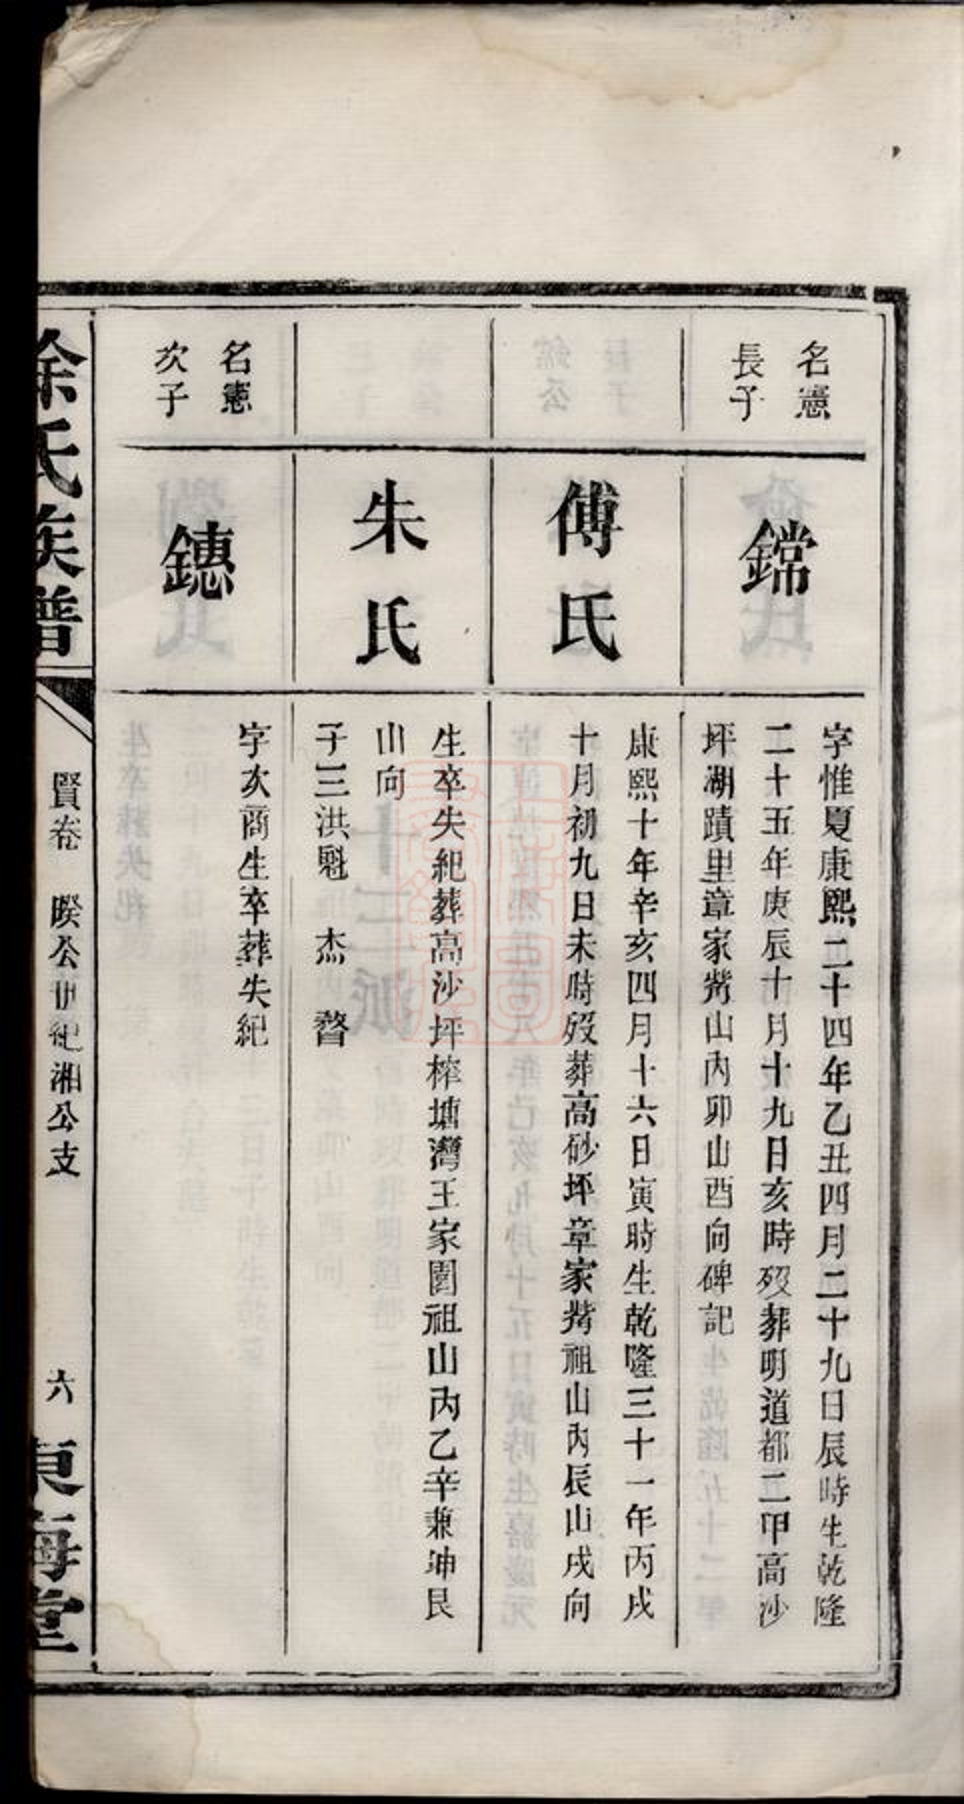 名憲
長子
鏛
字惟夏康熙二十四年乙丑四月二十九日辰時生乾隆
二十五年庚辰十月十九日亥時歿葬明道都二甲高沙
坪湖蹟里章家塝山內卯山酉向碑記
傅氏
康熙十年辛亥四月十六日寅時生乾隆三十一年丙戌
十月初九日未時歿葬高砂坪章家塝祖山內辰山戌向
朱氏
生卒失紀葬高沙坪榨塘灣王家園祖山內乙辛兼坤艮
山向
子三洪魁 杰 鰲
名憲
次子
鏸
字次商生卒葬失紀
徐氏族譜
賢卷 暌公世紀湘公支
六
東海堂